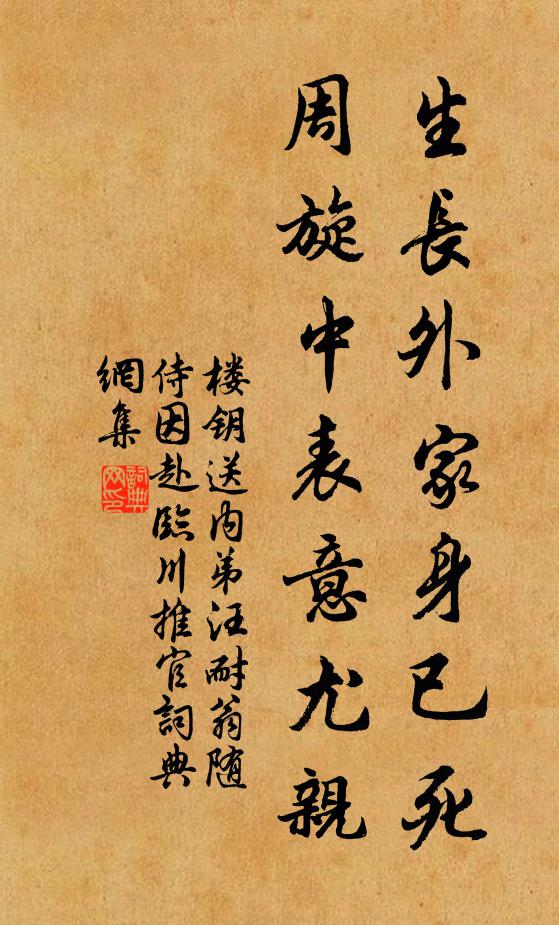 生長外家身已死
周旋中表意尤親
楼钥送内弟汪耐翁随
侍因赴臨川推官詞典
網集
詞典
网印